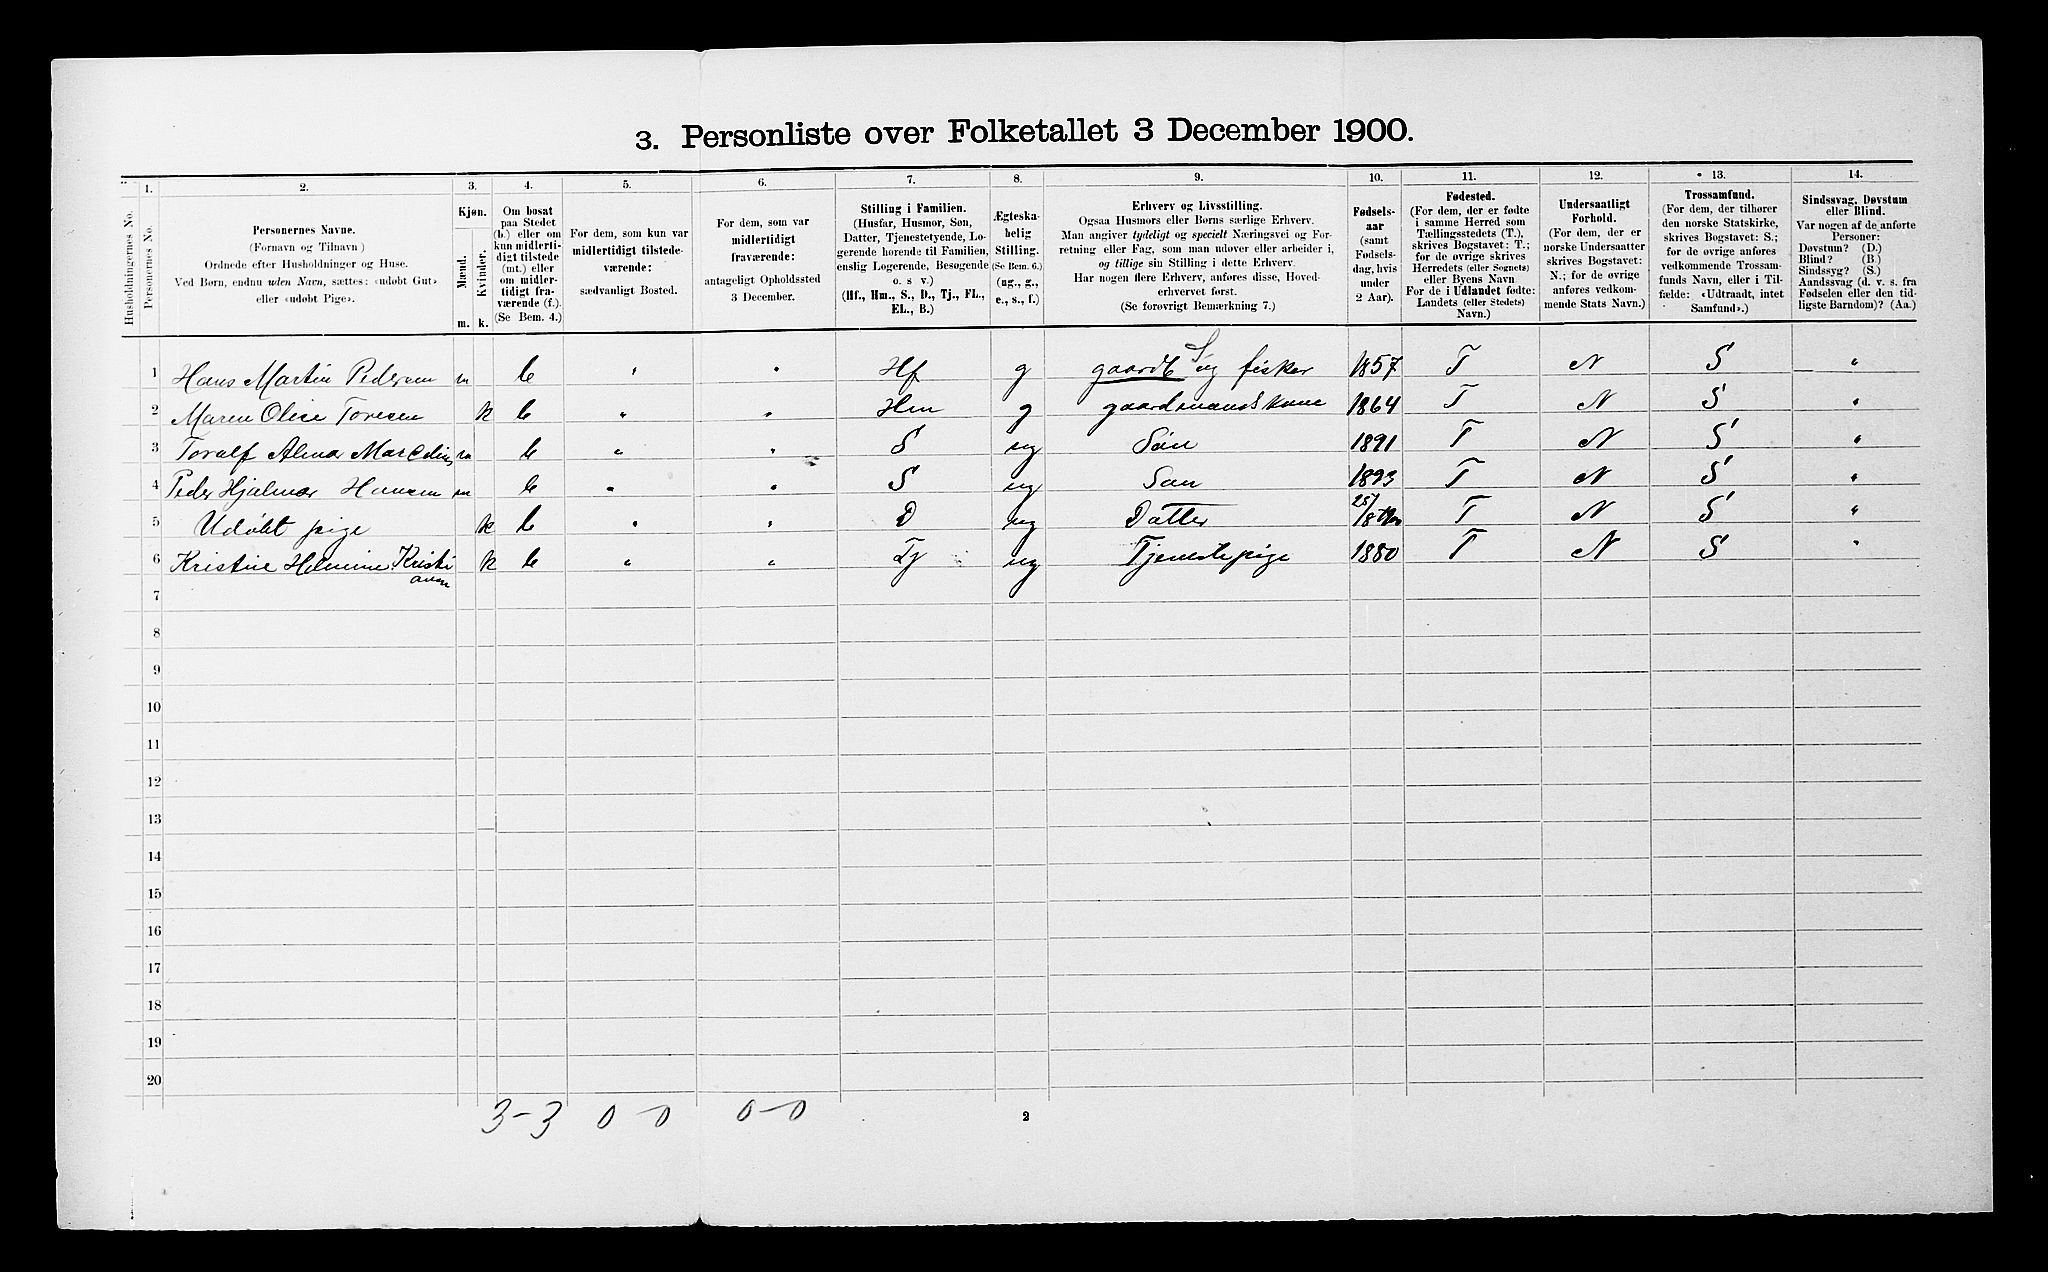 3. Personliste over Folketallet 3 December 1900.
Husholdningernes No.
1.
Personernes No.
2.
Personernes Navne.
(Fornavn og Tilnavn)
Ordnede efter Husholdninger og Huse.
Ved Børn, endnu uden Navn, sættes: «udøbt Gut»
eller «udøbt Pige».
3.
Kjøn.
Mænd.
Kvinder.
m. k.
4.
Om bosat
paa Stedet
(b.) eller om
kun midlerti-
digt tilstede
(mt.) eller
om midler-
tidigt fra-
værende (f.).
(Se Bem. 4.)
5.
For dem, som kun var
midlertidigt tilstede-
værende:
sædvanligt Bosted.
6.
For dem, som var
midlertidigt
fraværende:
antageligt Opholdssted
3 December.
7.
Stilling i Familien.
(Husfar, Husmor, Søn,
Datter, Tjenestetyende, Lo-
gerende hørende til Familien,
enslig Logerende, Besøgende
o. s v.)
(Hf., Hm., S., D., Tj., FL.,
EL., B.)
8.
Ægteska-
belig
Stilling.
(Se Bem. 6.)
(ug., g.,
e., s., f.)
9.
Erhverv og Livsstilling.
Ogsaa Husmors eller Børns særlige Erhverv.
Man angiver tydeligt og specielt Næringsvei og For-
retning eller Fag, som man udøver eller arbeider i,
og tillige sin Stilling i dette Erhverv.
Har nogen flere Erhverv, anføres disse, Hoved-
erhvervet først.
(Se forøvrigt Bemærkning 7.)
10.
Fødsels-
aar
(samt
Fødsels-
dag, hvis
under
2 Aar).
11.
Fødested.
(For dem, der er fødte
i samme Herred som
Tællingsstedets (T.),
skrives Bogstavet: T.;
for de øvrige skrives
Herredets (eller Sognets)
eller Byens Navn.
For de i Udlandet fødte:
Landets (eller Stedets)
Navn.)
12.
Undersaatligt
Forhold.
(For dem, der er
norske Undersaatter
skrives Bogstavet:
N.; for de øvrige
anføres vedkom-
mende Stats Navn.)
13.
Trossamfund.
(For dem, der tilhører
den norske Statskirke,
skrives Bogstavet: S.;
for de øvrige anføres
vedkommende Trossam-
funds Navn, eller i Til-
fælde: «Udtraadt, intet
Samfund».)
14.
Sindssvag, Døvstum
eller Blind.
Var nogen af de anførte
Personer:
Døvstum? (D.)
Blind? (B.)
Sindssyg? (S.)
Aandssvag (d. v. s. fra
Fødselen eller den tid-
ligste Barndom)? (Aa.)
1 Hans Martin Pedersen m b " " Hf g gaardb S og fisker 1857 T N S "
2 Maren Olise Toresen k b " " Hm g gaardmandskone 1864 T N S "
3 Toralf Almar Marcelius m b " " S ug Søn 1891 T N S "
4 Peder Hjalmar Hansen m b " " S ug Søn 1893 T N S "
5 Udøbt pige k b " " D ug Datter T N S "
6 Kristine Helmine Kristi k b " " Tj ug Tjenestepige 1880 T N S "
ansen
7
8
9
10
11
12
13
14
15
16
17
18
19
20
3-3 0-0 0-0
2